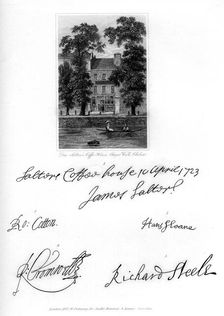 Don Saltero's Coffee House, Cheyne Walk, Chelsea
Salters Coffee house 10 April 1723
James Salter
Ro: Cotton
Hans Sloane
R Cromwell
Richard Steele
London